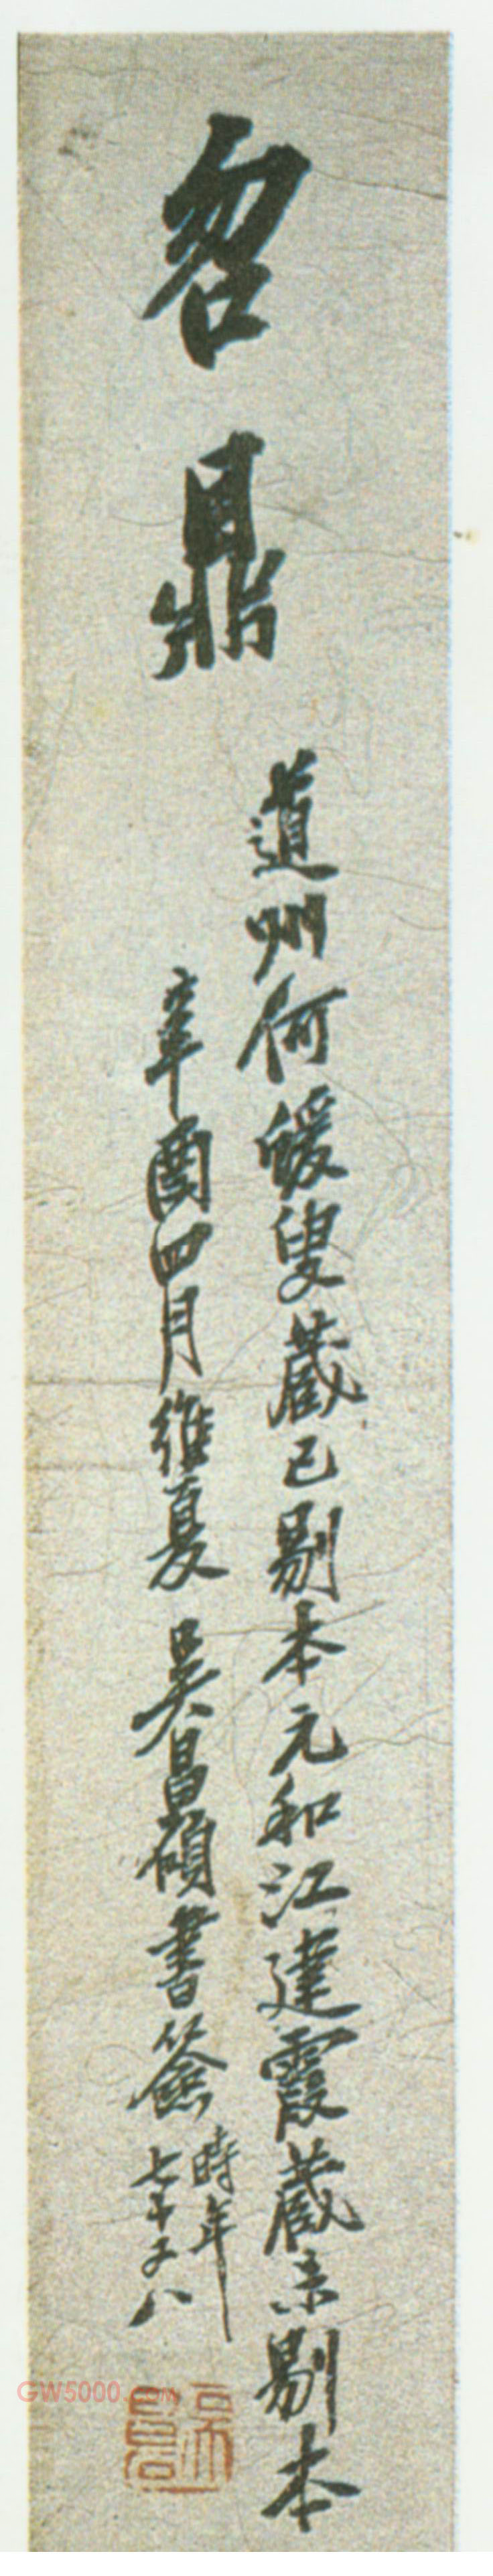 曶鼎
道州何蝯叟藏已剔本元和江建霞藏未剔本
辛酉四月維夏吳昌碩書簽
時年
七十又八
GW5000.com